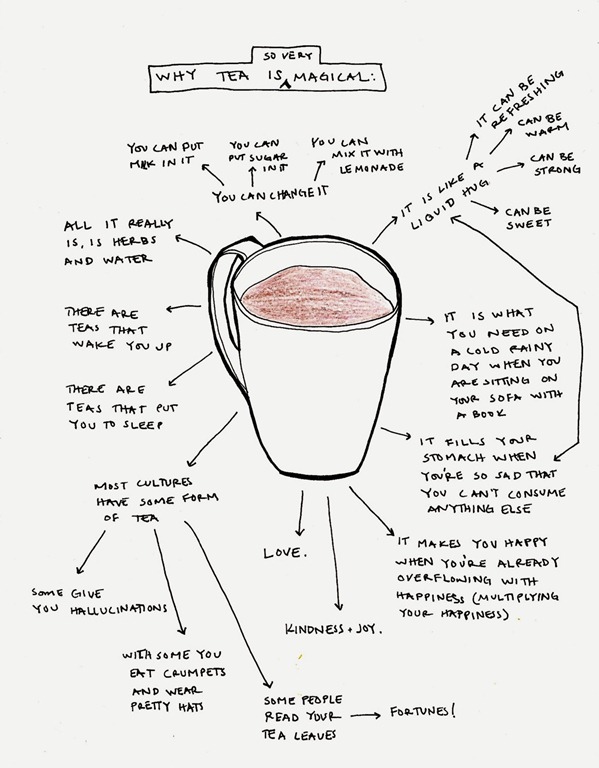 SO VERY
WHY TEA IS MAGICAL:
YOU CAN PUT
MILK IN IT
YOU CAN
PUT SUGAR
IN IT
YOU CAN
MIX IT WITH
LEMONADE
YOU CAN CHANGE IT
IT IS LIKE A
LIQUID HUG
IT CAN BE
REFRESHING
CAN BE
WARM
CAN BE
STRONG
CAN BE
SWEET
ALL IT REALLY
IS, IS HERBS
AND WATER
THERE ARE
TEAS THAT
WAKE YOU UP
THERE ARE
TEAS THAT PUT
YOU TO SLEEP
IT IS WHAT
YOU NEED ON
A COLD RAINY
DAY WHEN YOU
ARE SITTING ON
YOUR SOFA WITH
A BOOK
IT FILLS YOUR
STOMACH WHEN
YOU'RE SO SAD THAT
YOU CAN'T CONSUME
ANYTHING ELSE
MOST CULTURES
HAVE SOME FORM
OF TEA
LOVE.
IT MAKES YOU HAPPY
WHEN YOU'RE ALREADY
OVERFLOWING WITH
HAPPINESS (MULTIPLYING
YOUR HAPPINESS)
SOME GIVE
YOU HALLUCINATIONS
KINDNESS + JOY.
WITH SOME YOU
EAT CRUMPETS
AND WEAR
PRETTY HATS
SOME PEOPLE
READ YOUR
TEA LEAVES
FORTUNES!